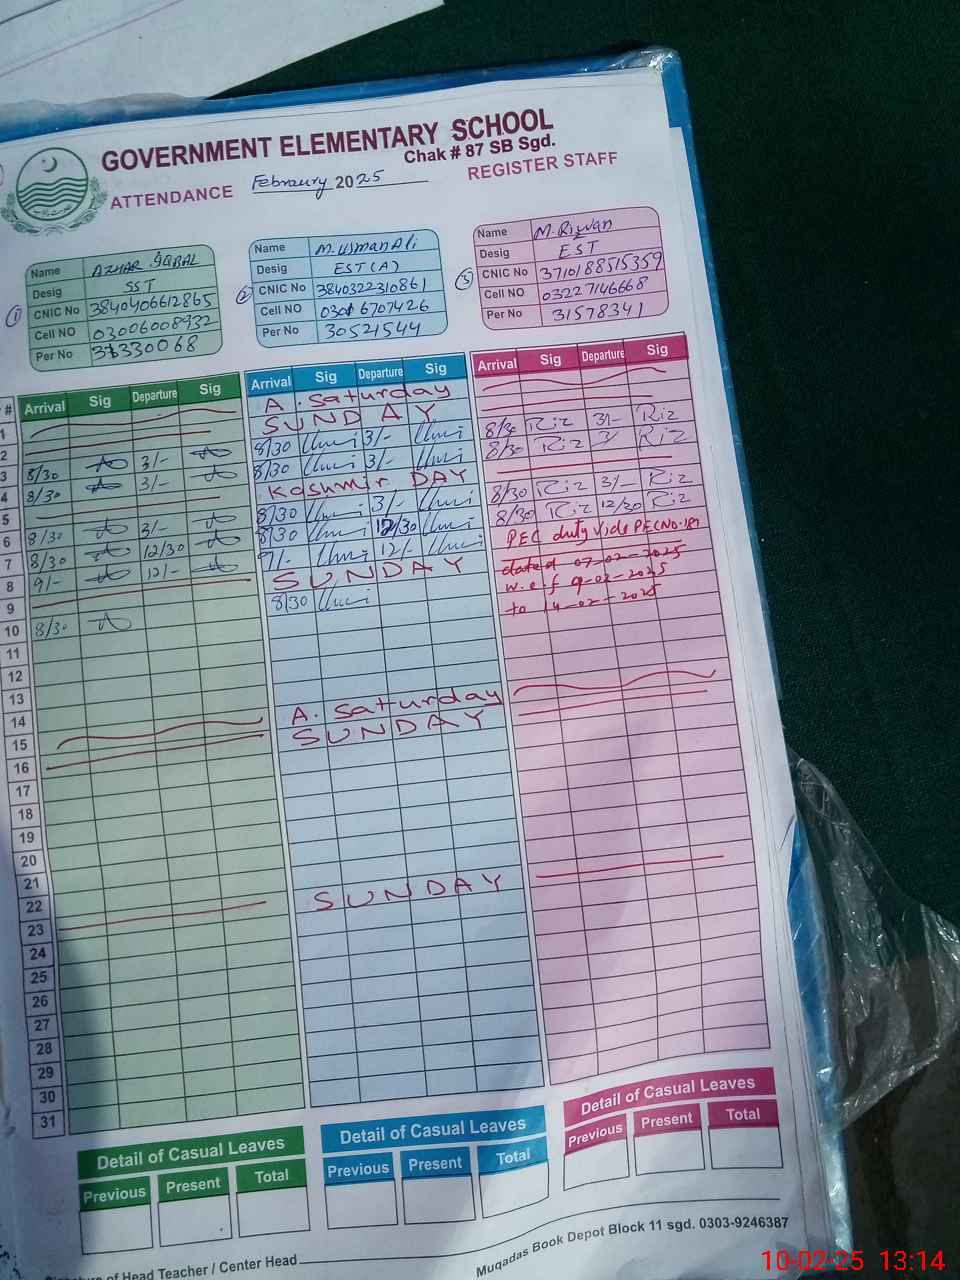 GOVERNMENT ELEMENTARY SCHOOL
Chak # 87 SB Sgd.
ATTENDANCE Febraury 2025 REGISTER STAFF
1
Name AZHAR IQBAL
Desig SST
CNIC No 3840406612865
Cell NO 03006008932
Per No 31330068
2
Name M. Usman Ali
Desig EST (A)
CNIC No 3840322310861
Cell NO 0301 6707426
Per No 30521544
3
Name M. Rizwan
Desig EST
CNIC No 3710188515359
Cell NO 03227146668
Per No 31578341
# Arrival Sig Departure Sig
1
2
3 8/30 3/-
4 8/30 3/-
5
6 8/30 3/-
7 8/30 12/30
8 9/- 12/-
9
10 8/30
11
12
13
14
15
16
17
18
19
20
21
22
23
24
25
26
27
28
29
30
31
Arrival Sig Departure Sig
A. Saturday
SUNDAY
8/30 3/-
8/30 3/-
Kashmir DAY
8/30 3/-
8/30 12/30
9/- 12/-
SUNDAY
8/30
A. Saturday
SUNDAY
SUNDAY
Arrival Sig Departure Sig
8/30 Riz 3/- Riz
8/30 Riz 3/ Riz
8/30 Riz 3/- Riz
8/30 Riz 12/30 Riz
PEC duty vide PEC No-181
dated 07-02-2025
w.e.f 9-02-2025
to 14-02-2025
Detail of Casual Leaves
Previous Present Total
Detail of Casual Leaves
Previous Present Total
Detail of Casual Leaves
Previous Present Total
of Head Teacher / Center Head
Muqadas Book Depot Block 11 sgd. 0303-9246387
10-02-25 13:14